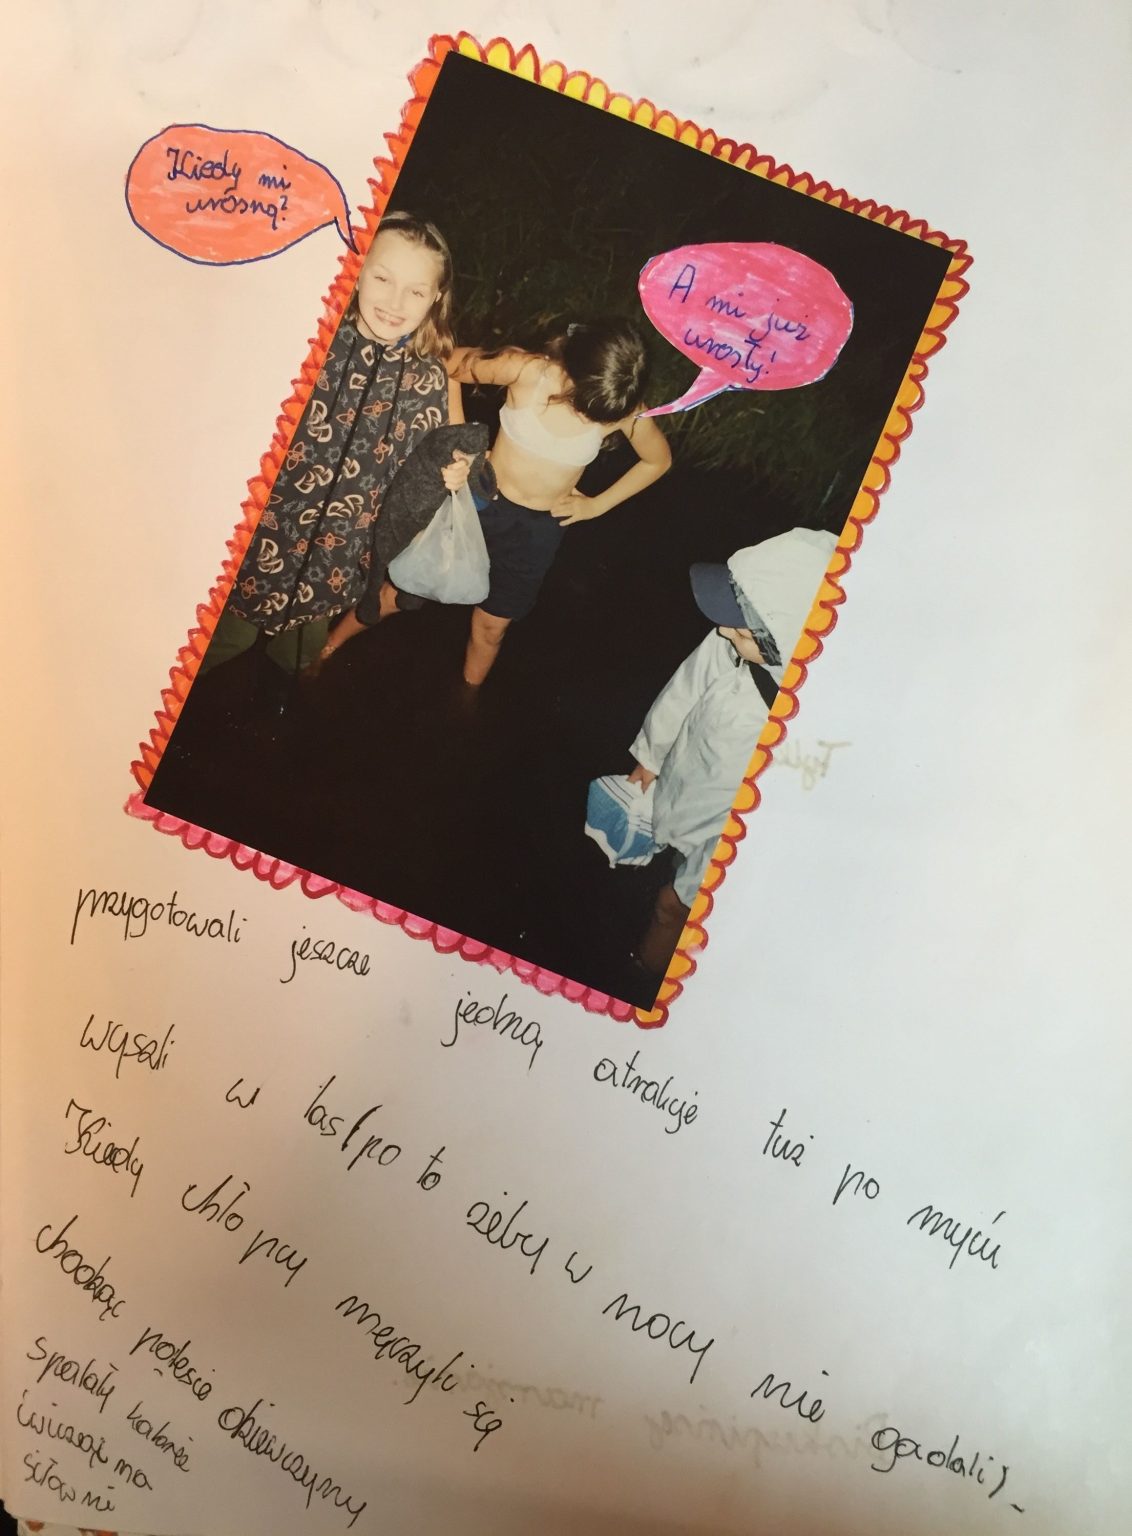 Kiedy mi
urosną?
A mi już
urosły!
przygotowali jeszcze jedną atrakcje tuż po myciu
wyszli w las (po to żeby w nocy nie gadali).
Kiedy chłopcy męczyli się
chodząc po lesie dziewczyny
spalały kalorie
ćwicząc na
siłowni